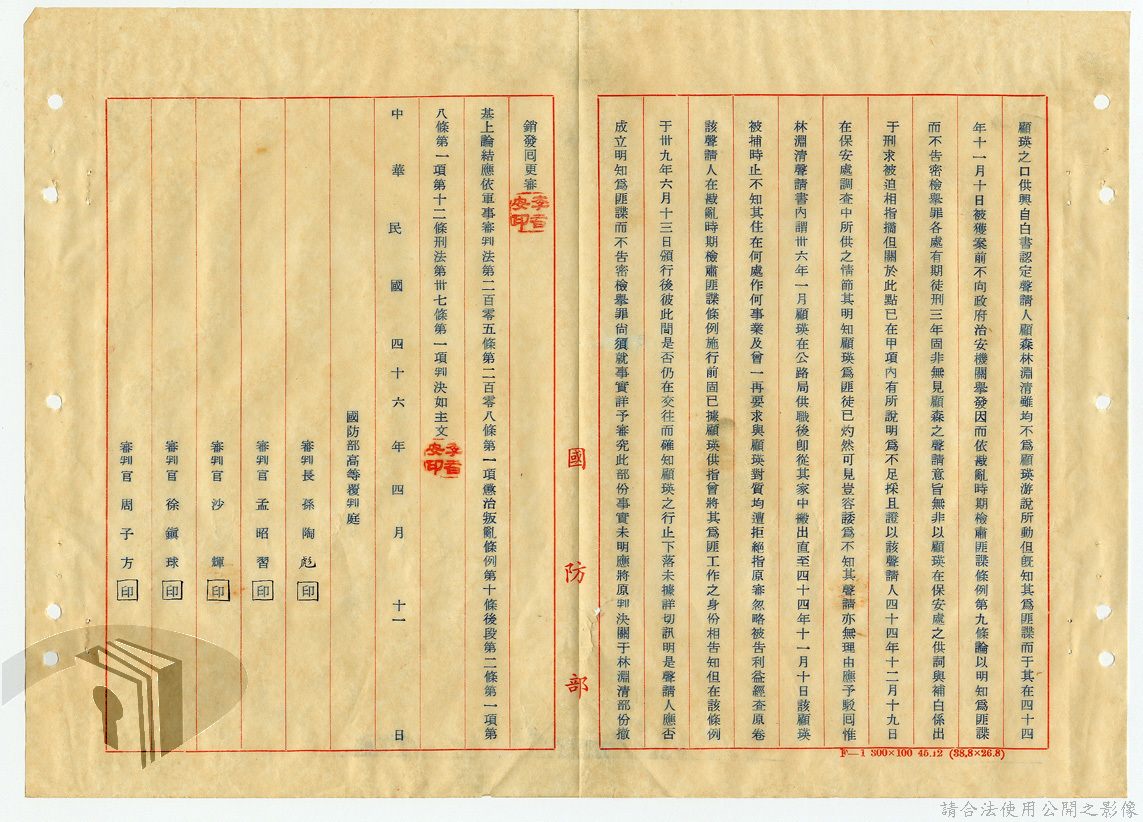 顧瑛之口供與自白書認定聲請人顧森林淵清雖均不為顧瑛游說所動但既知其為匪諜而于其在四十四
年十一月十日被獲案前不向政府治安機關舉發因而依戡亂時期檢肅匪諜條例第九條論以明知為匪諜
而不告密檢舉罪各處有期徒刑三年固非無見顧森之聲請意旨無非以顧瑛在保安處之供詞與補白係出
于刑求被迫相指摘但關於此點已在甲項內有所說明為不足採且證以該聲請人四十四年十二月十九日
在保安處調查中所供之情節其明知顧瑛為匪徒已灼然可見豈容諉為不知其聲請亦無理由應予駁回惟
林淵清聲請書內謂卅六年一月顧瑛在公路局供職後卽從其家中搬出直至四十四年十一月十日該顧瑛
被捕時止不知其住在何處作何事業及曾一再要求與顧瑛對質均遭拒絕指原審忽略被告利益經查原卷
該聲請人在戡亂時期檢肅匪諜條例施行前固已據顧瑛供指曾將其為匪工作之身份相告知但在該條例
于卅九年六月十三日頒行後彼此間是否仍在交往而確知顧瑛之行止下落未據詳切訊明是聲請人應否
成立明知為匪諜而不告密檢舉罪尙須就事實詳予審究此部份事實未明應將原判決關于林淵清部份撤
國防部
F—1 300×100 45.12 (38.8×26.8)
銷發回更審
基上論結應依軍事審判法第二百零五條第二百零八條第一項懲治叛亂條例第十條後段第二條第一項第
八條第一項第十二條刑法第卅七條第一項判決如主文
中華民國四十六年四月十一日
國防部高等覆判庭
審判長孫陶彪 印
審判官孟昭習 印
審判官沙輝 印
審判官徐鎭球 印
審判官周子方 印
請合法使用公開之影像